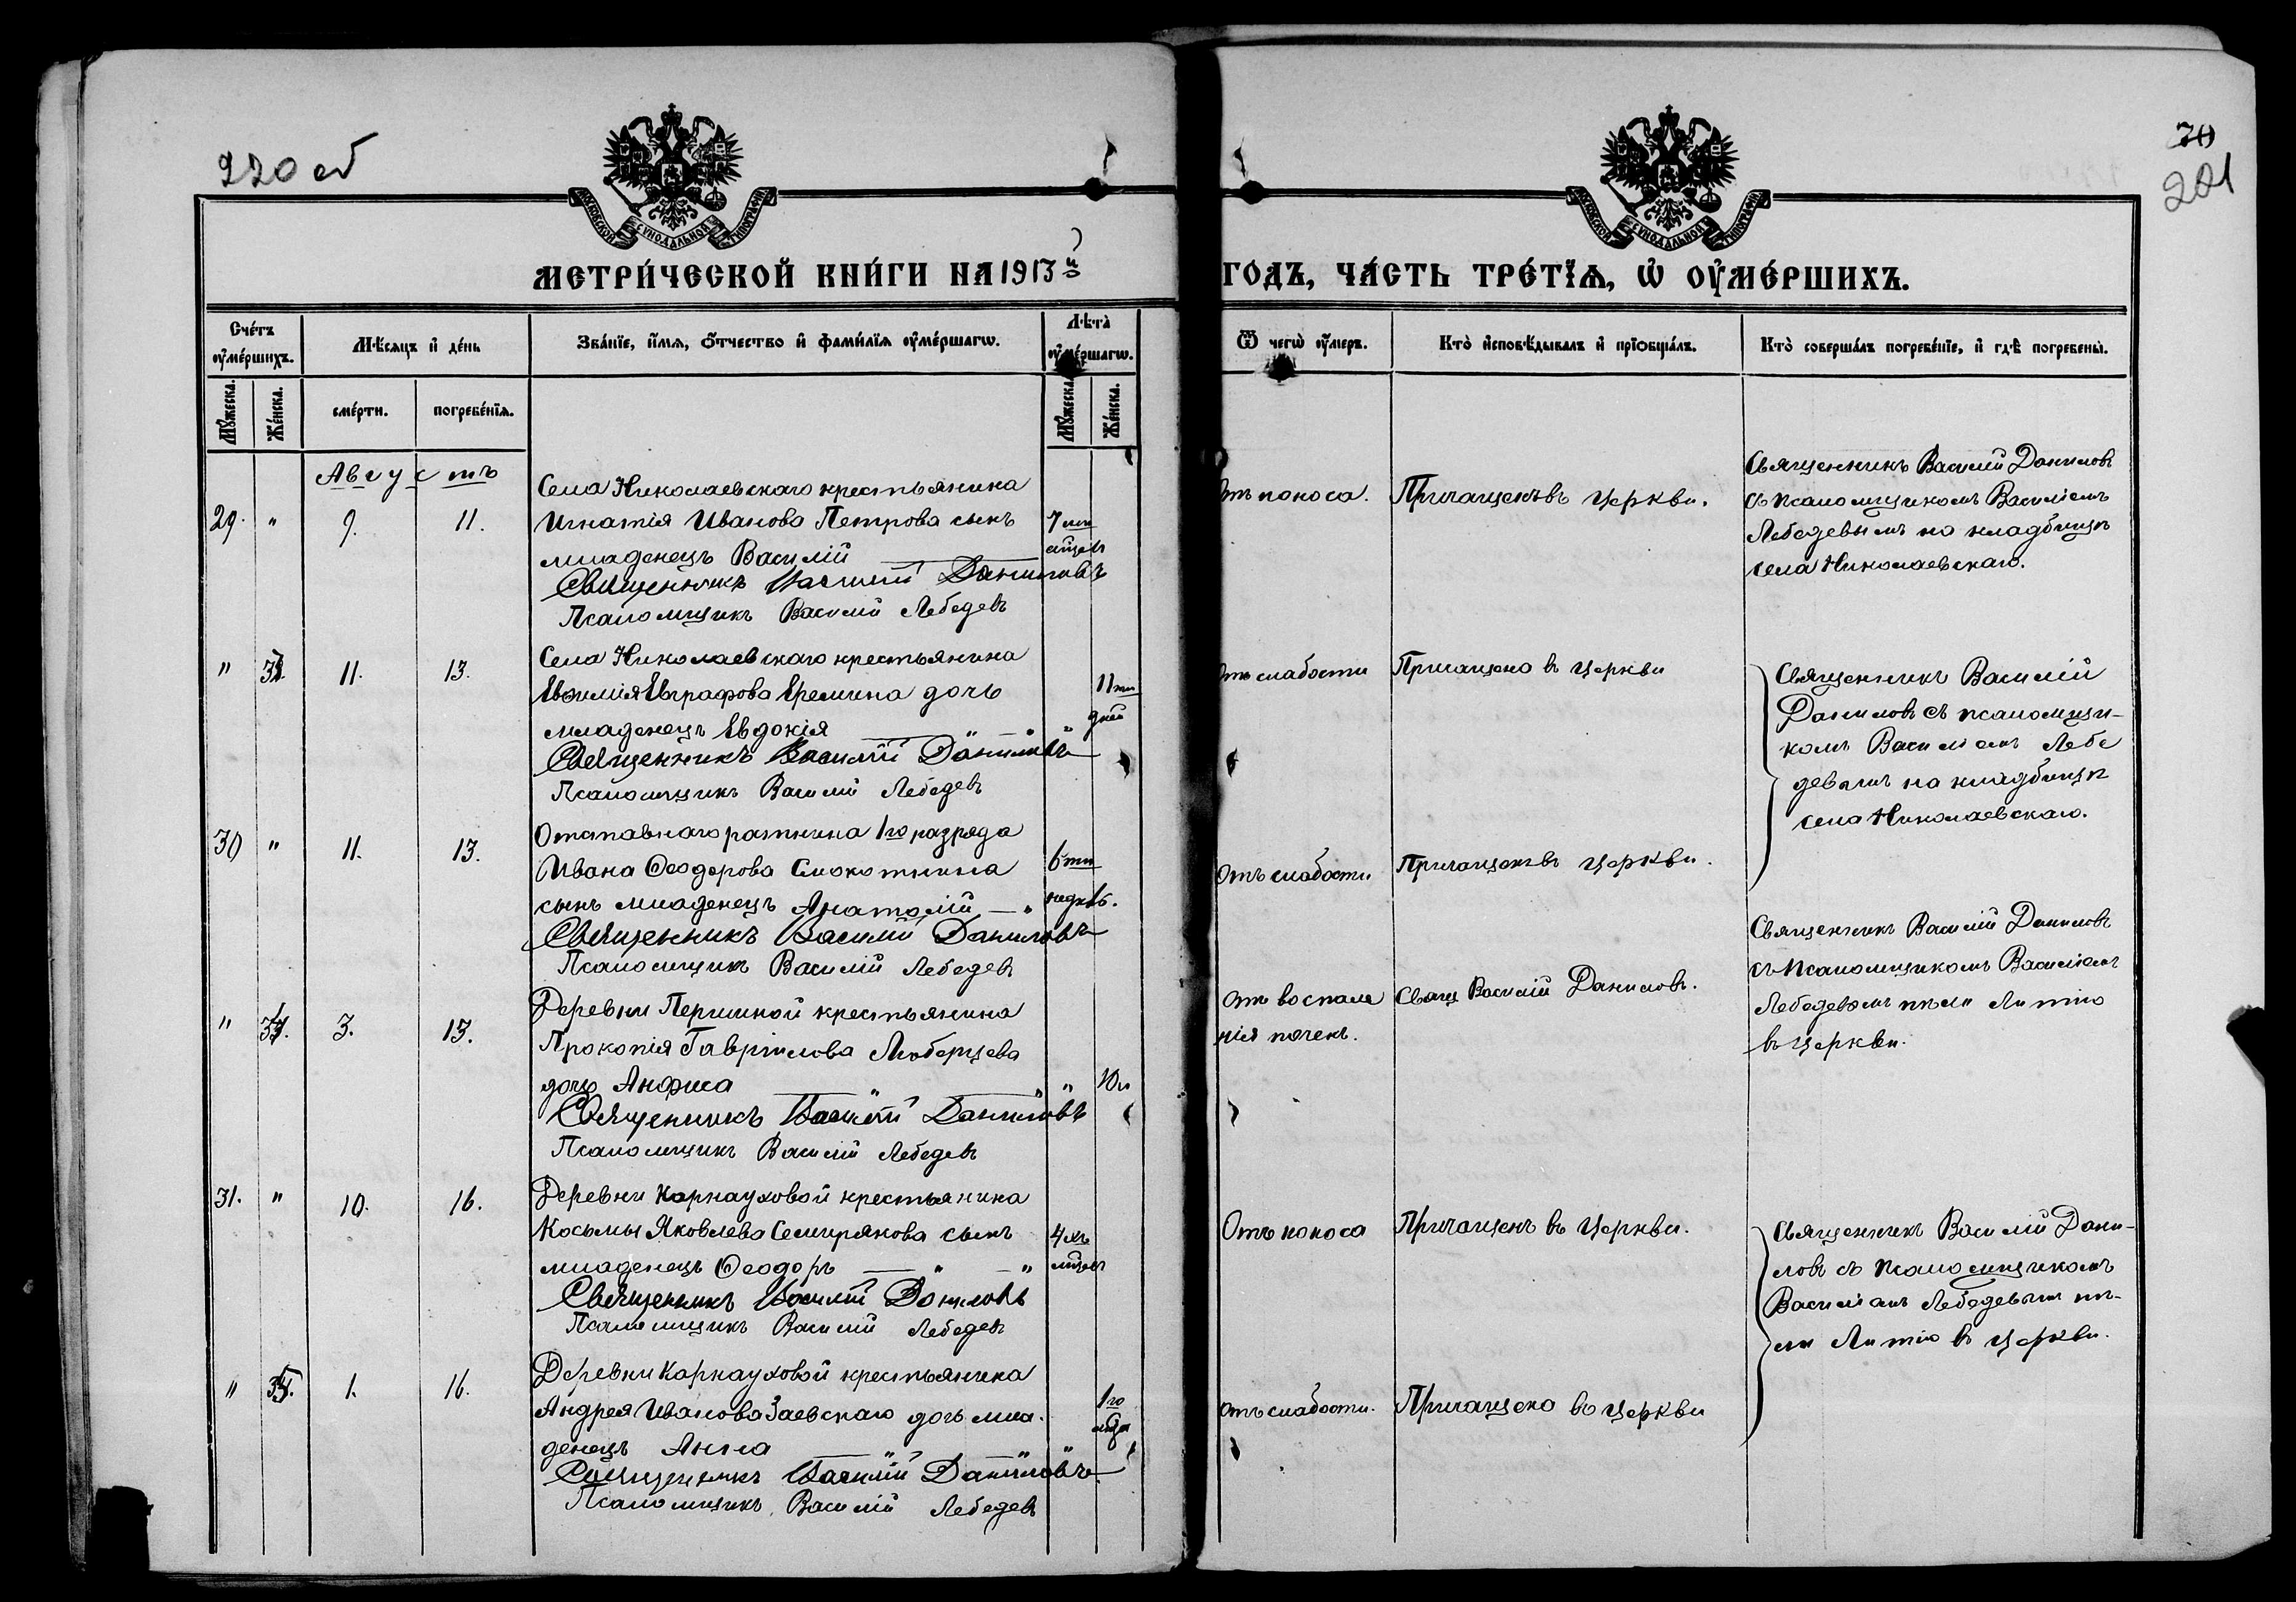 220 об
70
201
МОСКОВСКОЙ СѴНОДАЛЬНОЙ ТИПОГРАФІИ
МОСКОВСКОЙ СѴНОДАЛЬНОЙ ТИПОГРАФІИ
МЕТРИ́ЧЕСКОЙ КНИ́ГИ НА 1913й ГОДЪ, ЧА́СТЬ ТРЕ́ТЇѦ, Ѡ҆ ОУ҆МЕ́РШИХЪ.
Сче́тъ оу҆ме́ршихъ.
Мѣ́сѧцъ и҆ де́нь
Зва́нїе, и҆́мѧ, ѻ҆́тчество и҆ фами́лїѧ оу҆ме́ршагѡ.
Лѣта̀ оу҆ме́ршагѡ.
Ѿ чегѡ̀ оу҆́меръ.
Кто̀ и҆сповѣ́дывалъ и҆ прїѡбща́лъ.
Кто̀ соверша́лъ погребе́нїе, и҆ гдѣ̀ погребены̀.
Мꙋ́жеска.
Же́нска.
сме́рти.
погребе́нїѧ.
Мꙋ́жеска.
Же́нска.
Августъ
29. " 9. 11.
Села Николаевскаго крестьянина
Игнатія Иванова Петрова сынъ
младенецъ Василій
7ми
мѣцевъ
Священникъ Василій Даниловъ
Псаломщикъ Василій Лебедевъ
Отъ поноса.
Причащенъ въ церкви.
Священникъ Василій Даниловъ
съ псаломщикомъ Василіемъ
Лебедевымъ на кладбищѣ
села Николаевскаго.
" 11. 13.
Села Николаевскаго крестьянина
Евѳимія Евграфова Еремина дочь
младенецъ Евдокія
11ти
дней
Священникъ Василій Даниловъ
Псаломщикъ Василій Лебедевъ
Отъ слабости
Причащена въ церкви
Священникъ Василій
Даниловъ съ псаломщи-
комъ Василіемъ Лебе
девымъ на кладбищѣ
села Николаевскаго.
30 " 11. 13.
Отставнаго ратника 1го разряда
Ивана Ѳеодорова Смокотнина
сынъ младенецъ Анатолій
6ти
недѣль.
Священникъ Василій Даниловъ
Псаломщикъ Василій Лебедевъ
Отъ слабости
Причащенъ въ церкви.
" 3. 13.
Деревни Першиной крестьянина
Прокопія Гавріилова Люберцева
дочь Анфиса
10и
Священникъ Василій Даниловъ
Псаломщикъ Василій Лебедевъ
Отъ воспале
нія почекъ.
Свящ Василій Даниловъ.
Священникъ Василій Даниловъ
съ псаломщикомъ Василіемъ
Лебедевымъ пѣли Литію
въ церкви.
31. " 10. 16.
Деревни Карнауховой крестьянина
Косьмы Яковлева Семирякова сынъ
младенецъ Ѳеодоръ
4хъ
мѣцевъ
Священникъ Василій Даниловъ
Псаломщикъ Василій Лебедевъ
Отъ поноса
Причащенъ въ церкви.
Священникъ Василій Дани-
ловъ съ псаломщикомъ
Василіемъ Лебедевымъ пѣ-
ли Литію въ церкви.
" 1. 16.
Деревни Карнауховой крестьянина
Андрея Иванова Заевскаго дочь мла-
денецъ Анна
1го
мѣця
Священникъ Василій Даниловъ
Псаломщикъ Василій Лебедевъ
Отъ слабости.
Причащена въ церкви